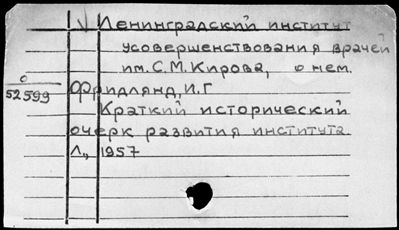 V Ленинградский институт
усовершенствования врачей
им. С. М. Кирова, о нем.
О
52599
Фридлянд, И. Г
Краткий исторический
очерк развития института.
Л., 1957